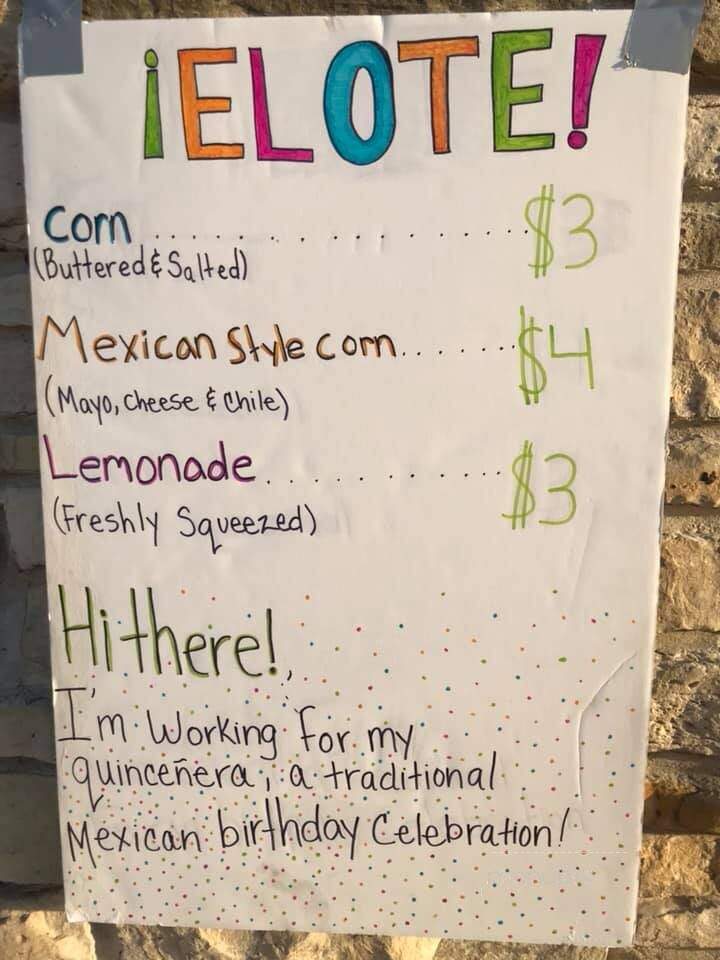 ¡ELOTE!
Corn .................. $3
(Buttered & Salted)
Mexican Style Corn....... $4
(Mayo, Cheese & Chile)
Lemonade............ $3
(Freshly Squeezed)
Hi there!,
I'm Working for my
quinceñera, a traditional
Mexican birthday Celebration!